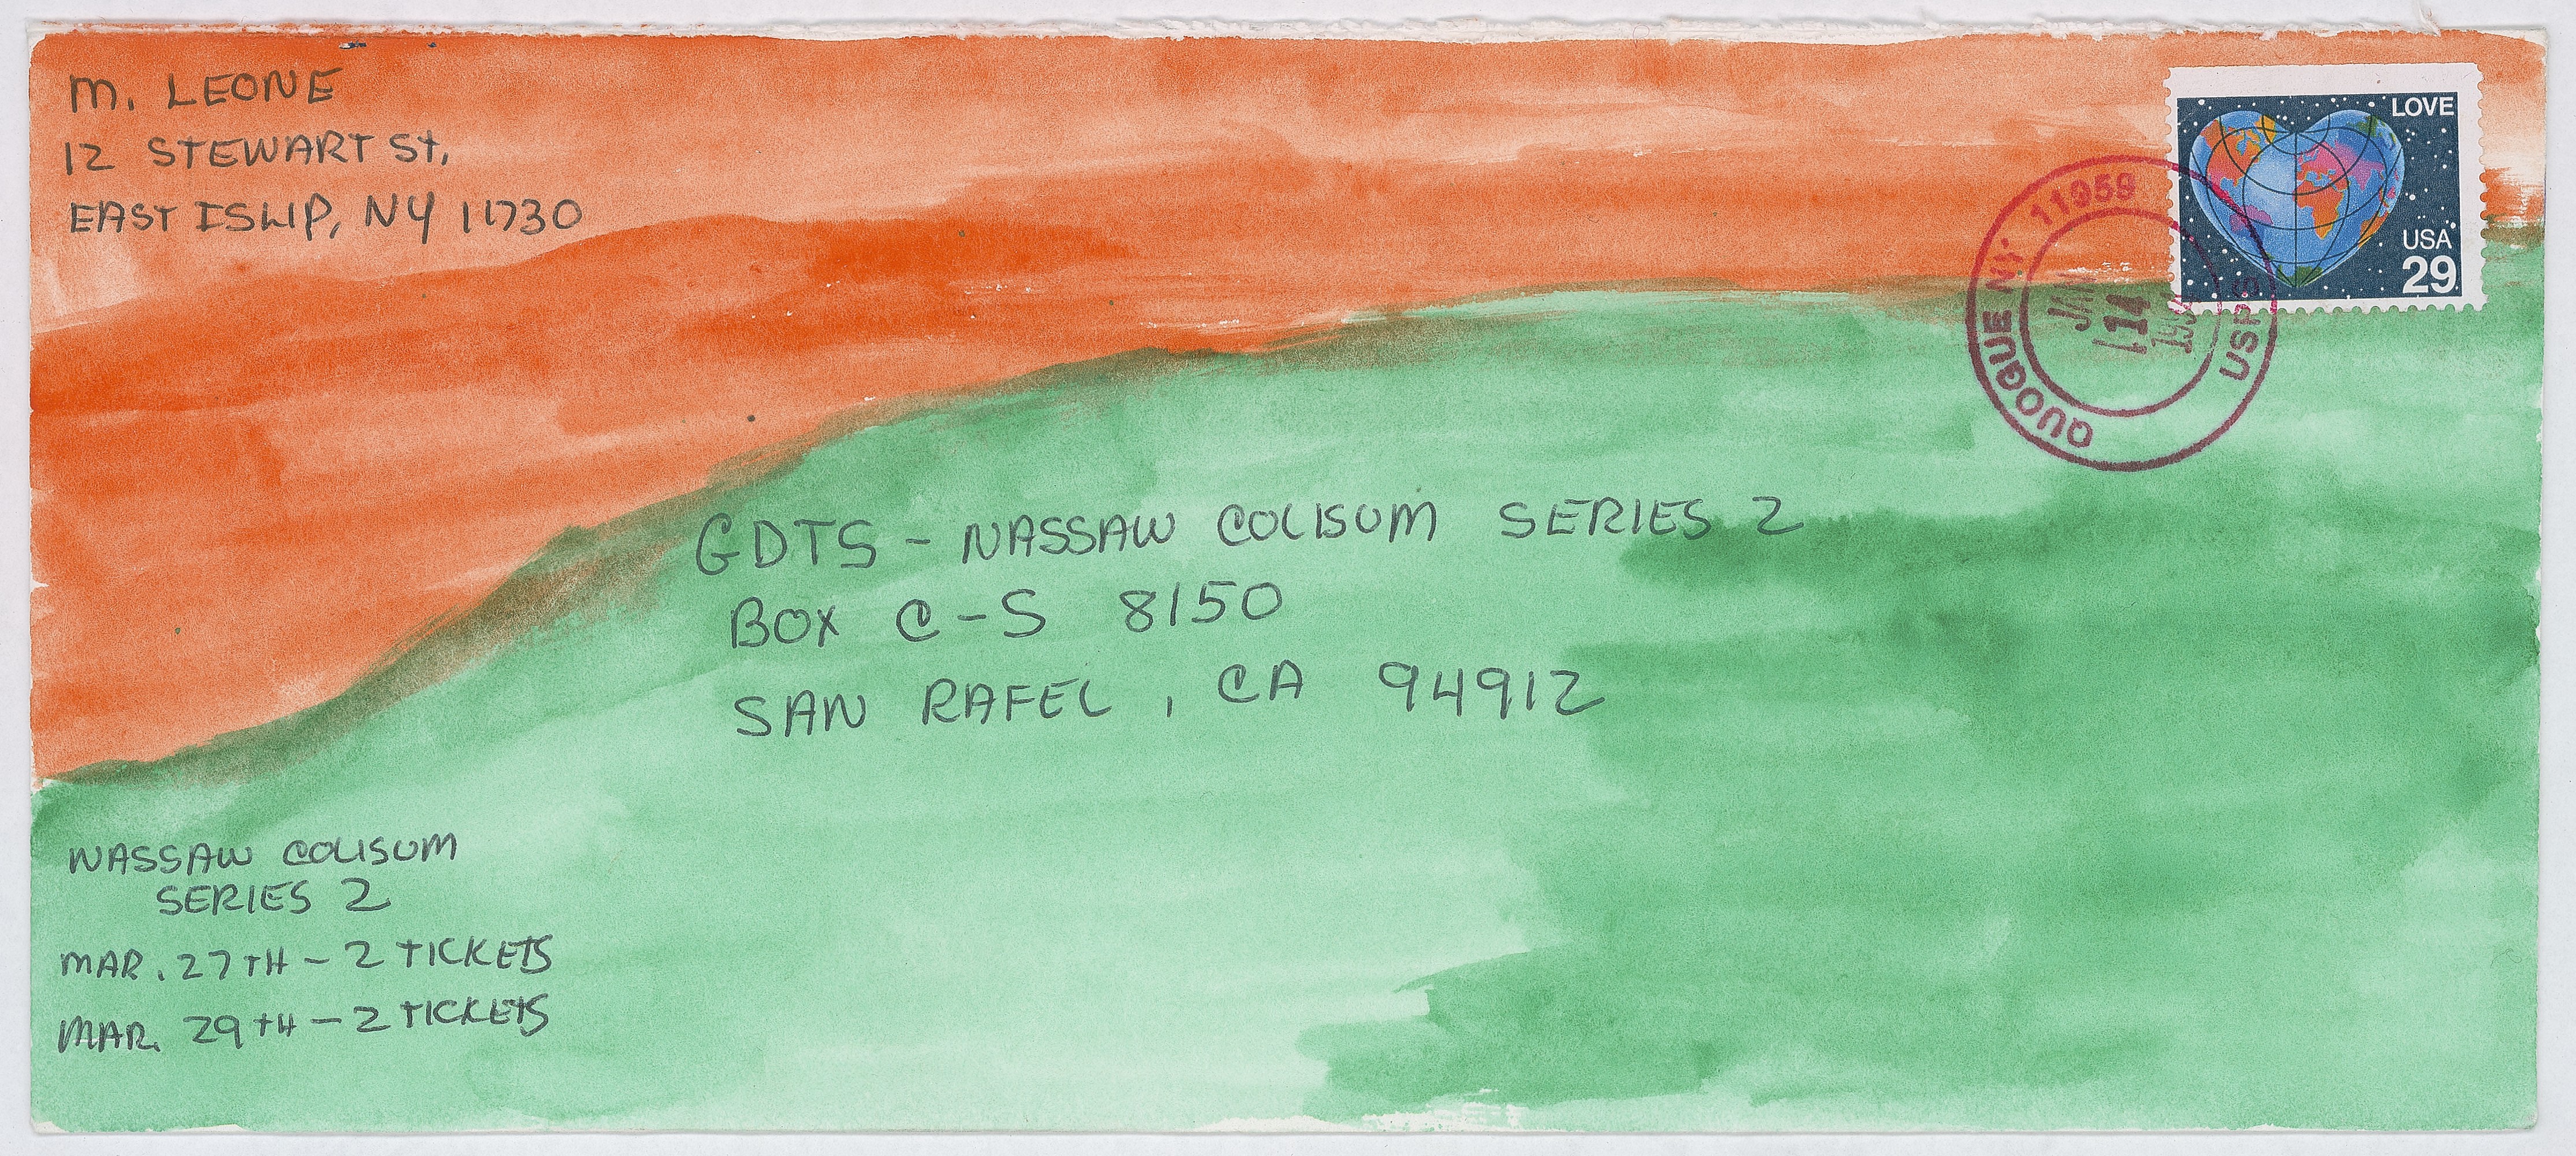 M. LEONE
12 STEWART St.
EAST ISLIP, NY 11730
LOVE
USA
29
QUOGUE NY. 11959
USPS
JAN
14
GDTS - NASSAW COLISUM SERIES 2
BOX C-S 8150
SAN RAFEL, CA 94912
NASSAW COLISUM
SERIES 2
MAR. 27TH - 2 TICKETS
MAR. 29TH - 2 TICKETS